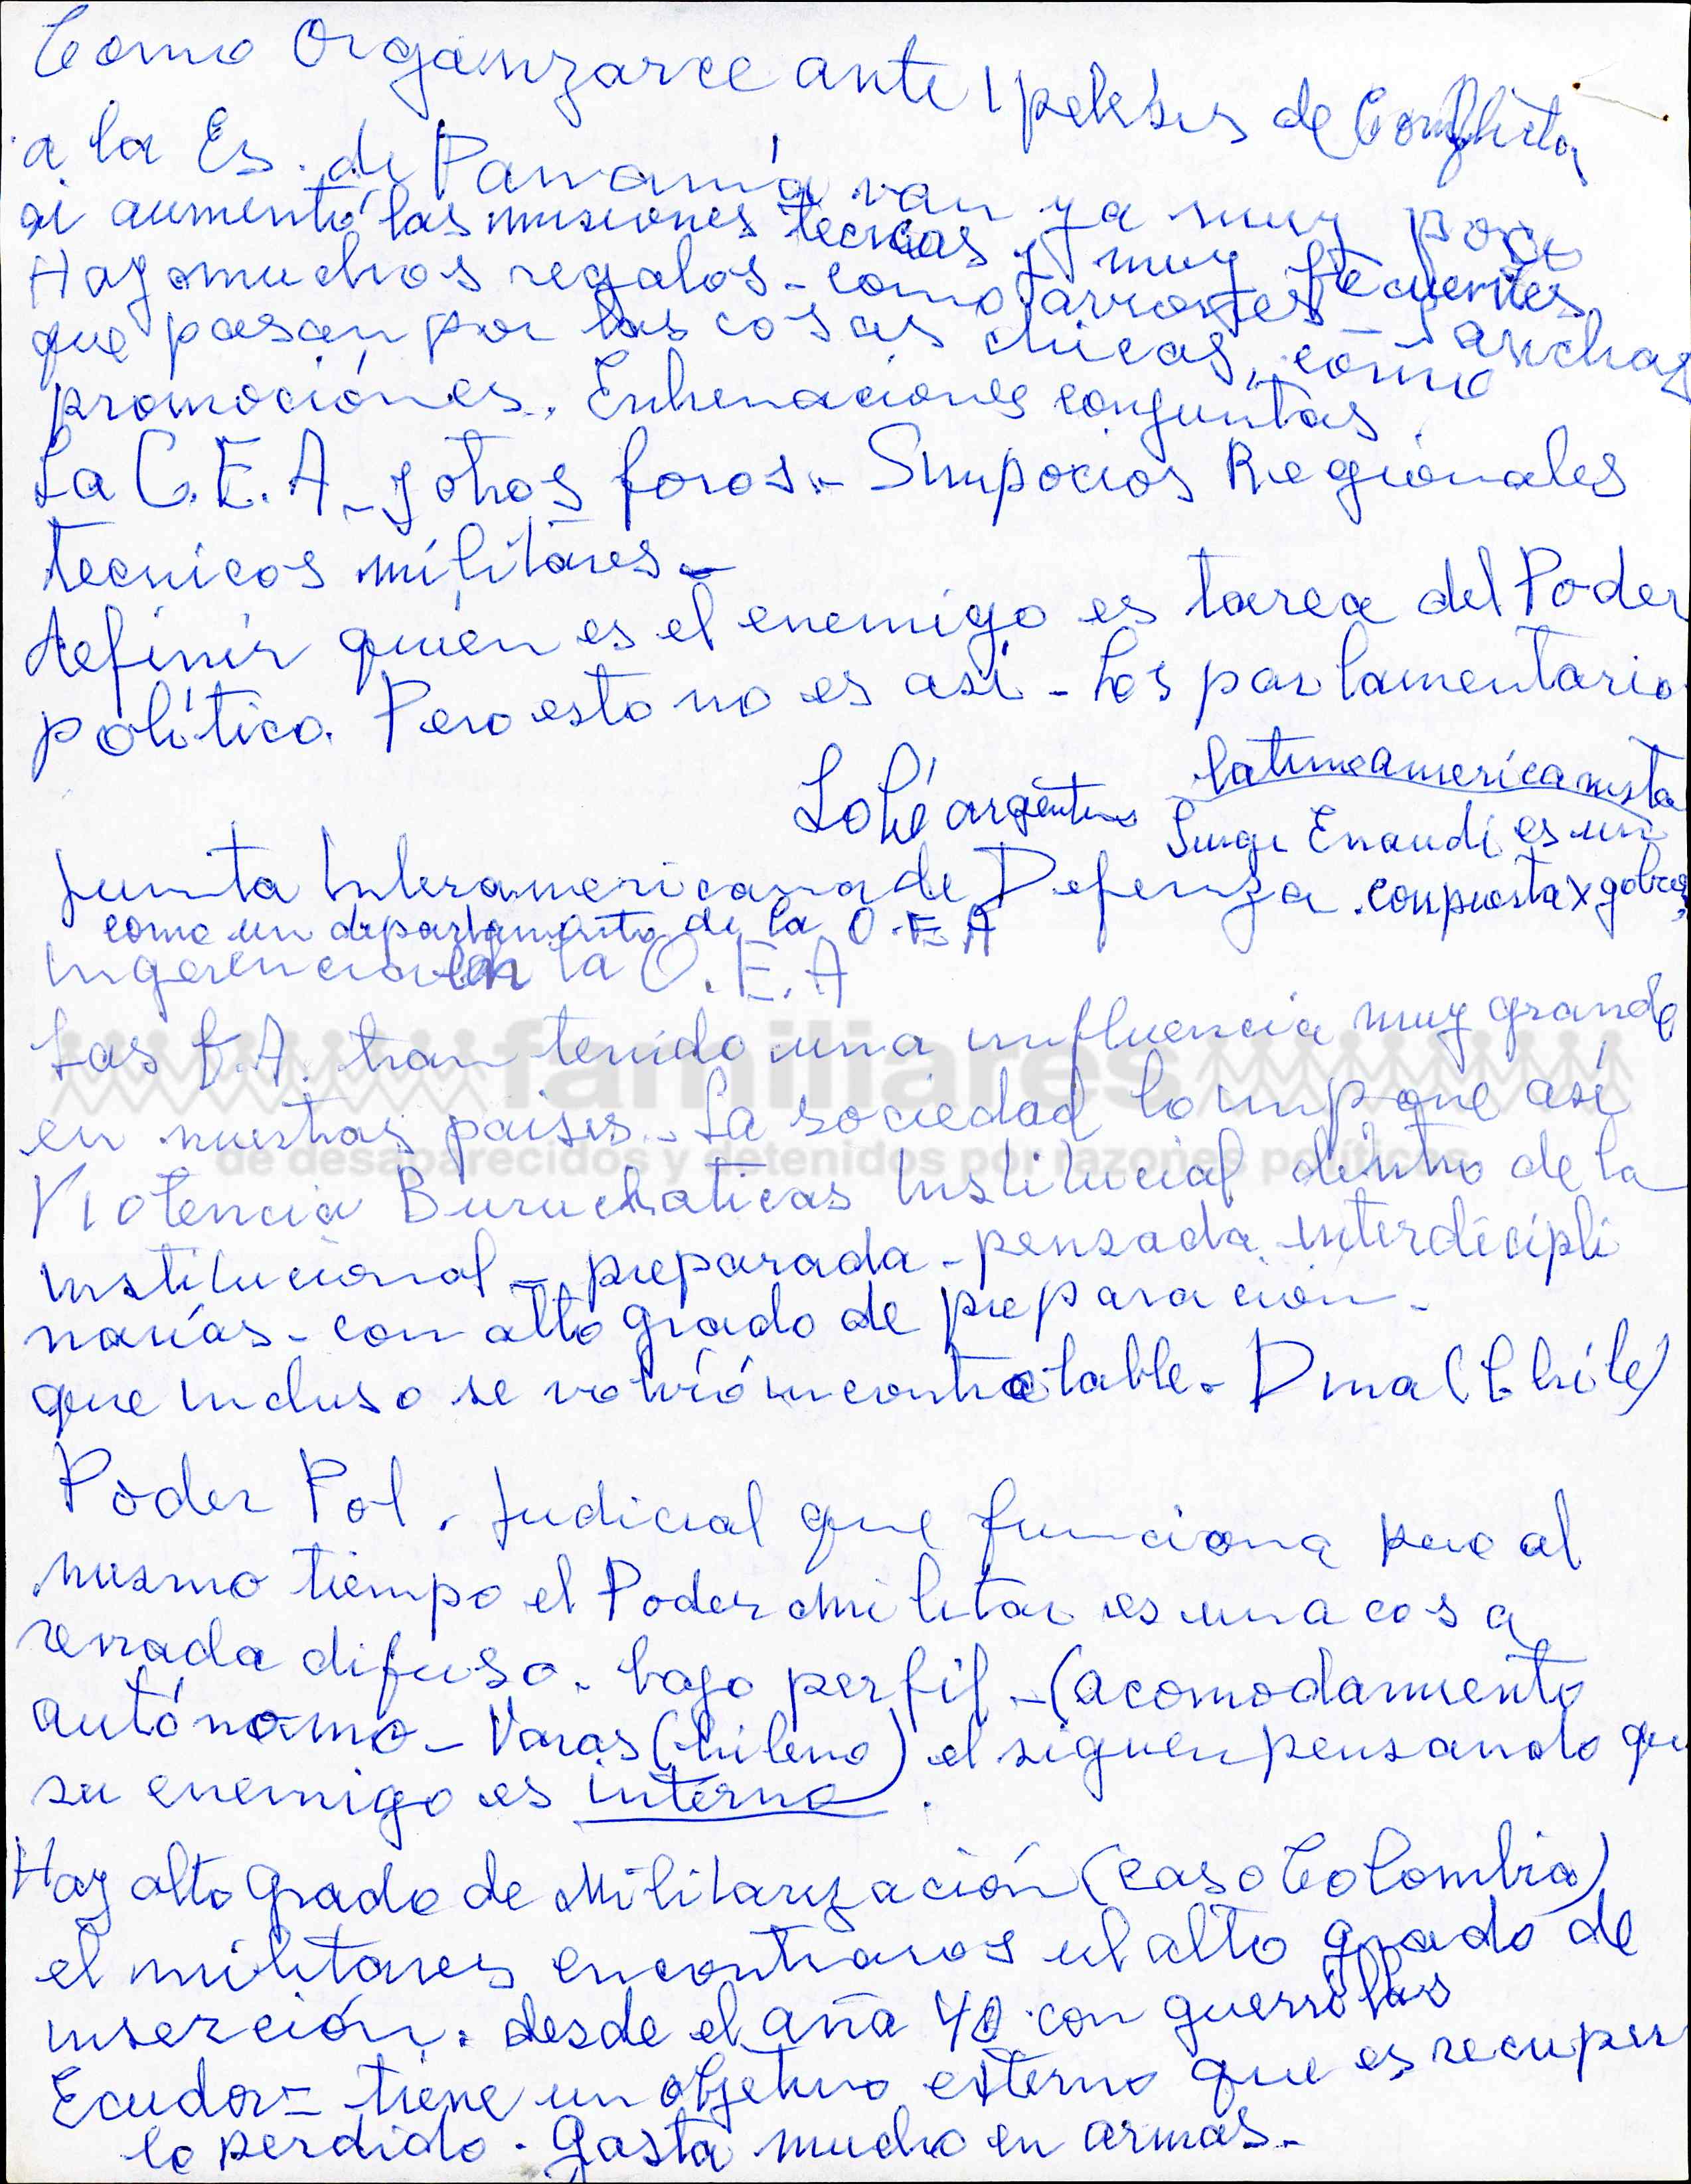 Como Organizarce ante Ipotesis de Conflicto
a la Es. de Panamá van ya muy poco
si aumentó las misiones tecnicas y muy frecuentes
Hay muchos regalos - como arrores - y anchas
que pasan por las cosas chicas, como
promociónes. Entrenaciones conjuntas
La C.E.A - y otros foros - Simpocios Regionales
tecnicos militares -
definir quien es el enemigo es tarea del Poder
político. Pero esto no es asi - Los parlamentario
latinoamericanista
Lohé argentino Luigi Enaudi es un
Junta Interamericana de Defenza . conpuesta x gobier
como un departamento de la O.E.A
Ingerencia en la O.E.A
Las F.A. han tenido una influencia muy grande
en nuestros paises - La sociedad lo impone así
familiares
de desaparecidos y detenidos por razones políticas
Violencia Buruchaticas Institucial dentro de la
institucional - preparada - penzada interdicipli
narias - con alto grado de preparación -
que incluso se volvió incontrolable - Dina (Chile)
Poder Pol. Judicial que funciona pero al
mismo tiempo el Poder Militar es una cosa
rerrada difusa. bajo perfil - (acomodamiento
autónomo - Varas (chileno) el siguen penzando que
su enemigo es interno .
Hay alto grado de Militarización (caso Colombia)
el militares encontraros el alto grado de
inserción. desde el año 40 con guerrillas
Ecudor = tiene un objetivo esterno que es recuper
lo perdido. Gasta mucho en armas -